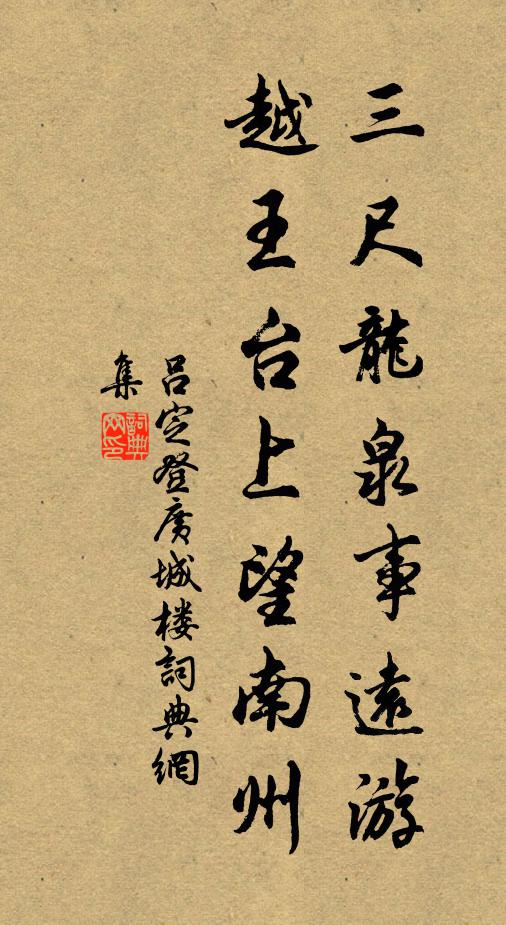 三尺龍泉事遠游
越王台上望南州
呂定登广城楼詞典網
集
詞典
网印